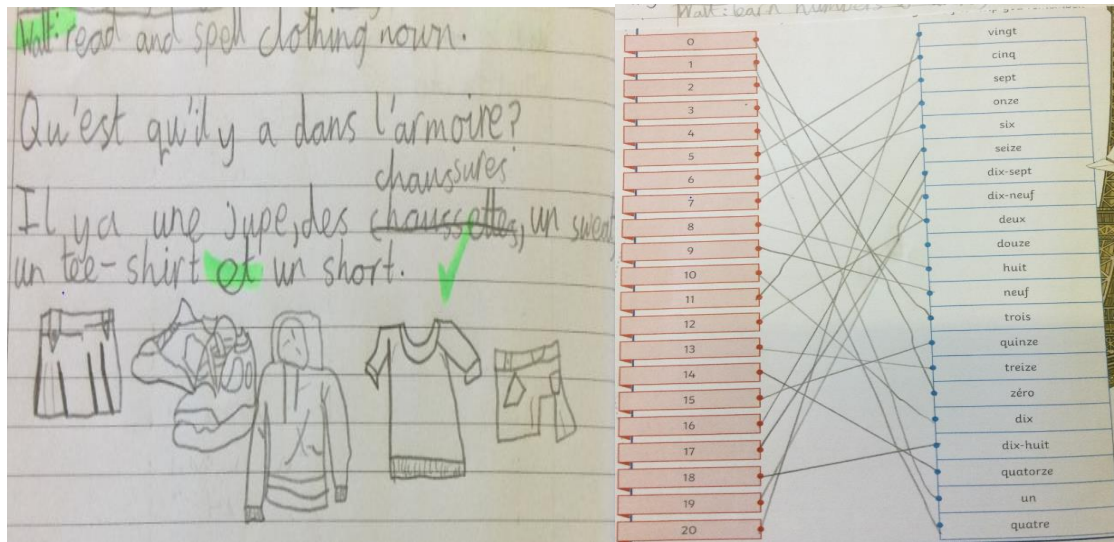 Walt: read and spell clothing noun.
Qu'est qu'il y a dans l'armoire?
chaussures
Il y a une jupe, des chaussettes, un sweat
un tee-shirt et un short.
Walt: learn numbers
0
1
2
3
4
5
6
7
8
9
10
11
12
13
14
15
16
17
18
19
20
vingt
cinq
sept
onze
six
seize
dix-sept
dix-neuf
deux
douze
huit
neuf
trois
quinze
treize
zéro
dix
dix-huit
quatorze
un
quatre